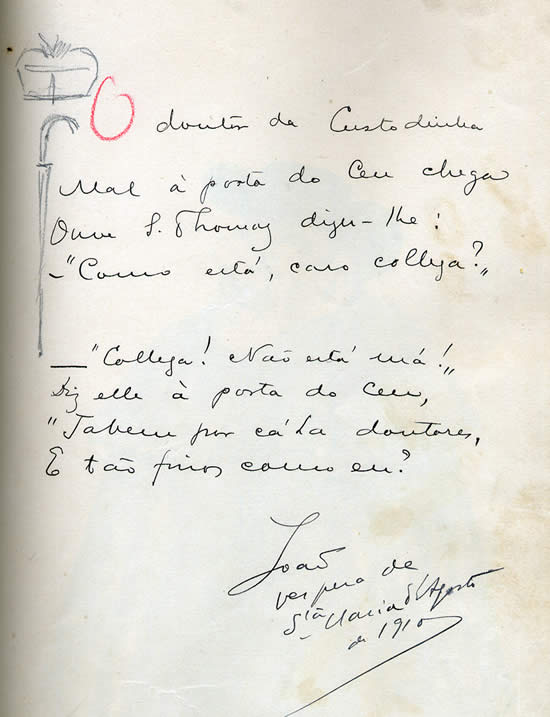 O doutor da Custodinha
Mal à porta do Ceu chega
Ouve S. Thomaz dizer-lhe:
–"Como está, caro collega?"
—"Collega! Não está má!"
Diz elle à porta do Ceu,
"Tabem por cá há doutores,
E tão finos como eu?
João
vespera de
Stª Maria d'Agosto
de 1910